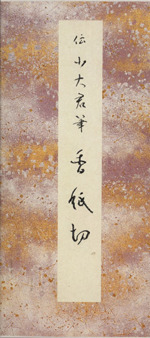 伝小大君筆 香紙切